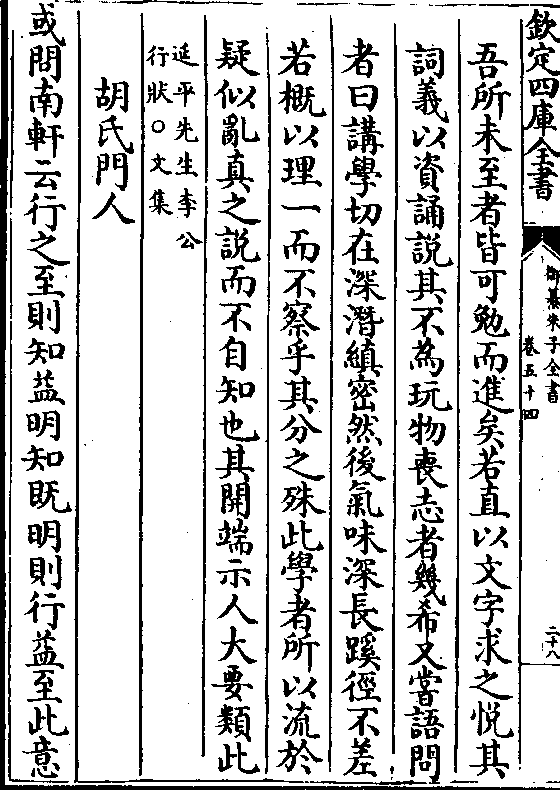 欽定四庫全書
御纂朱子全書
卷五十四
二十八
吾所未至者皆可勉而進矣若直以文字求之悅其
詞義以資誦說其不為玩物喪志者幾希又嘗語問
者曰講學切在深潛縝密然後氣味深長蹊徑不差
若概以理一而不察乎其分之殊此學者所以流於
疑似亂真之說而不自知也其開端示人大要類此
延平先生李公
行狀○文集
胡氏門人
或問南軒云行之至則知益明知既明則行益至此意